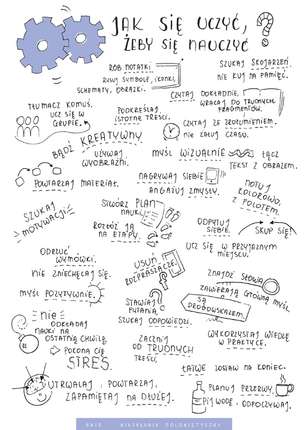 JAK SIĘ UCZYĆ,
ŻEBY SIĘ NAUCZYĆ
?
RÓB NOTATKI
RYSUJ SYMBOLE, IKONKI,
SCHEMATY, OBRAZKI.
SZUKAJ SKOJARZEŃ.
NIE KUJ NA PAMIĘĆ.
CZYTAJ DOKŁADNIE,
WRACAJ DO TRUDNYCH
FRAGMENTÓW.
TŁUMACZ KOMUŚ,
UCZ SIĘ W
GRUPIE.
PODKREŚLAJ
ISTOTNE TREŚCI.
CZYTAJ ZE ZROZUMIENIEM.
NIE CAŁYM CZASU.
BĄDŹ KREATYWNY
UŻYWAJ
WYOBRAŹNI.
MYŚL WIZUALNIE
ŁĄCZ
TEKST Z OBRAZEM.
POWTARZAJ MATERIAŁ.
NAGRYWAJ SIEBIE
ANGAŻUJ ZMYSŁY.
NOTUJ
KOLOROWO,
Z POLOTEM.
SZUKAJ
MOTYWACJI
STWÓRZ PLAN
NAUKI
ROZŁÓŻ JĄ
NA ETAPY.
ODPYTUJ
SIEBIE.
SKUP SIĘ!
UCZ SIĘ W PRZYJAZNYM
MIEJSCU.
ODRZUĆ
WYMÓWKI.
NIE ZNIECHĘCAJ SIĘ.
USUŃ
ROZPRASZACZE.
MYŚL POZYTYWNIE.
ZNAJDŹ SŁOWA
ZAWIERAJĄ GŁÓWNĄ MYŚL
SĄ
DROGOWSKAZEM.
STAWIAJ
PYTANIA
SZUKAJ ODPOWIEDZI.
NIE
ODKŁADAJ
NAUKI NA
OSTATNIĄ CHWILĘ.
POGONIĆ SIĘ
STRES.
ZACZNIJ
OD TRUDNYCH
TREŚCI,
ŁATWE ZOSTAW NA KONIEC.
WYKORZYSTAJ WIEDZĘ
W PRAKTYCE.
UTRWALAJ, POWTARZAJ,
ZAPAMIĘTAJ NA DŁUŻEJ.
PLANUJ PRZERWY,
PIJ WODĘ, ODPOCZYWAJ.